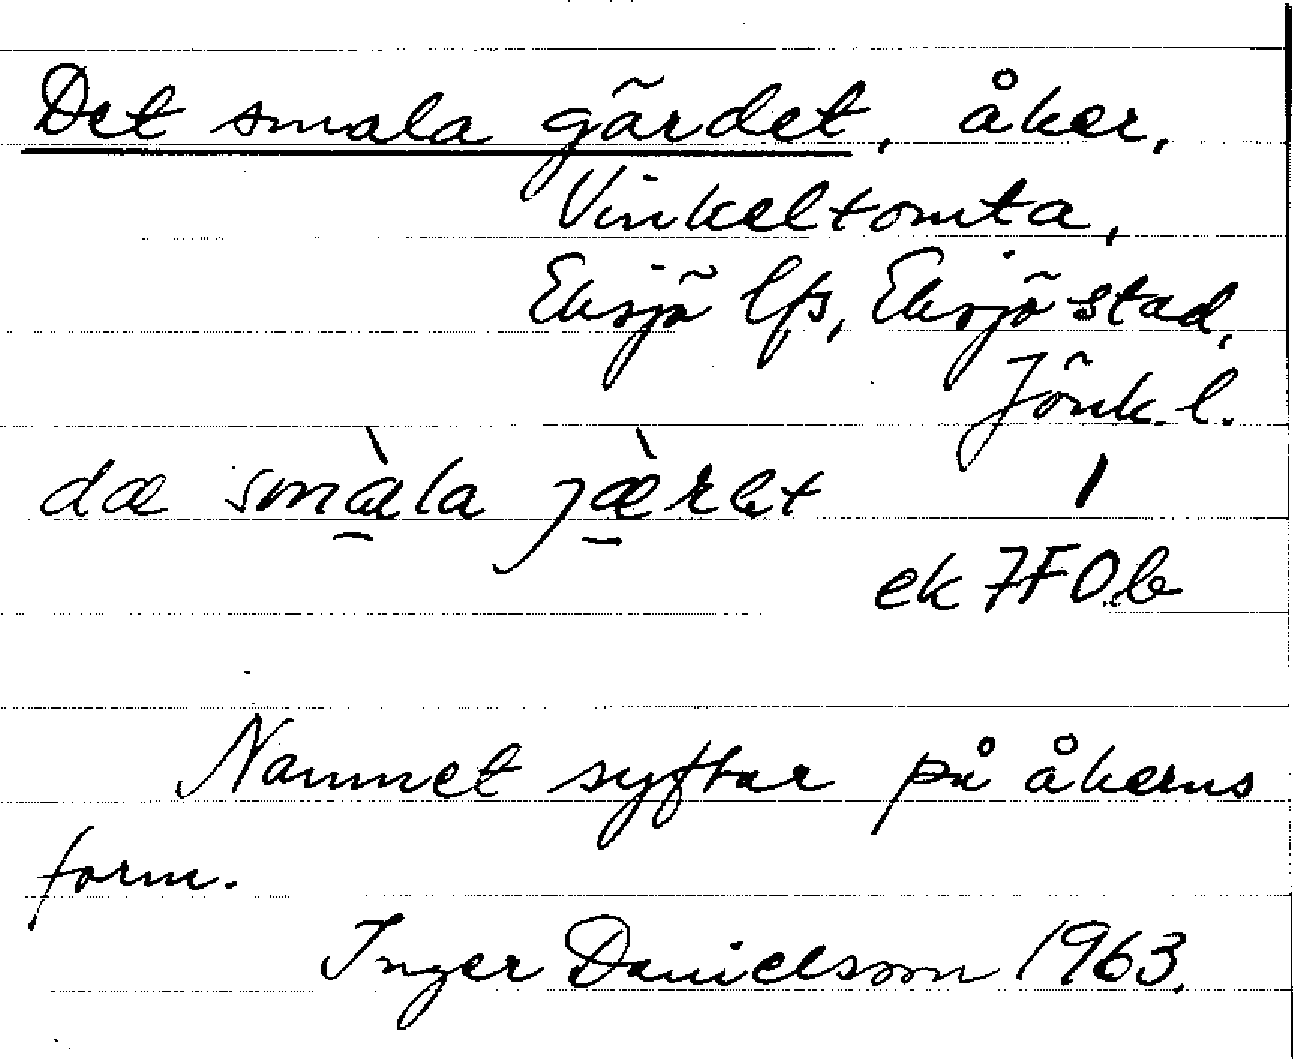 Det smala gärdet, åker,
Vinkeltomta,
Eksjö lfs, Eksjö stad,
Jönk. l.
dæ smàla jæ̀rdet 1
ek 7F0b
Namnet syftar på åkerns
form.
Inger Danielsson 1963.